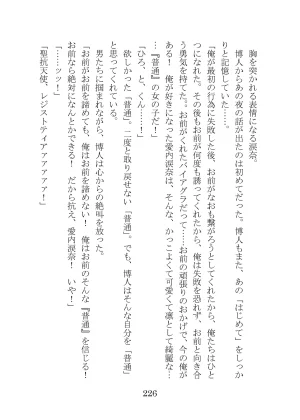 胸を突かれる表情になる涙奈。
博人からあの夜の話が出たのは初めてだった。博人もまた、あの「はじめて」をしっか
りと記憶していた……。
「俺が最初の行為に失敗した後、お前がなおも繋がろうとしてくれたから、俺たちはひと
つになれた。その後もお前が何度も誘ってくれたから、俺は失敗を恐れず、お前と向き合
う勇気を持てた。お前がくれたバイアグラだって……お前の頑張りのおかげで、今の俺が
ある！　俺が好きになった愛内涙奈は、そんな、かっこよくて可愛くて凛として綺麗な…
…『普通』の女の子だ！」
「ひろ、と、くん……！」
欲しかった「普通」。二度と取り戻せない「普通」。でも、博人はそんな自分を「普通」
と思ってくれている。
男たちに掴まれながら、博人は心からの絶叫を放った。
「お前がお前を諦めても、俺はお前を諦めない！　俺はお前のそんな『普通』を信じる！
お前なら絶対になんとかできる！　だから抗え、愛内涙奈！　いや！」
「……ッッ！」
「聖抗天使、レジストティアアァァァァ！」
226